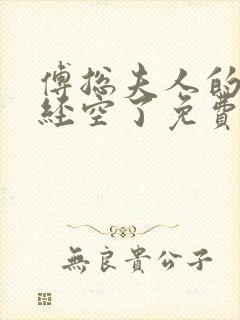 傅總夫人的
經空了免費
無良貴公子